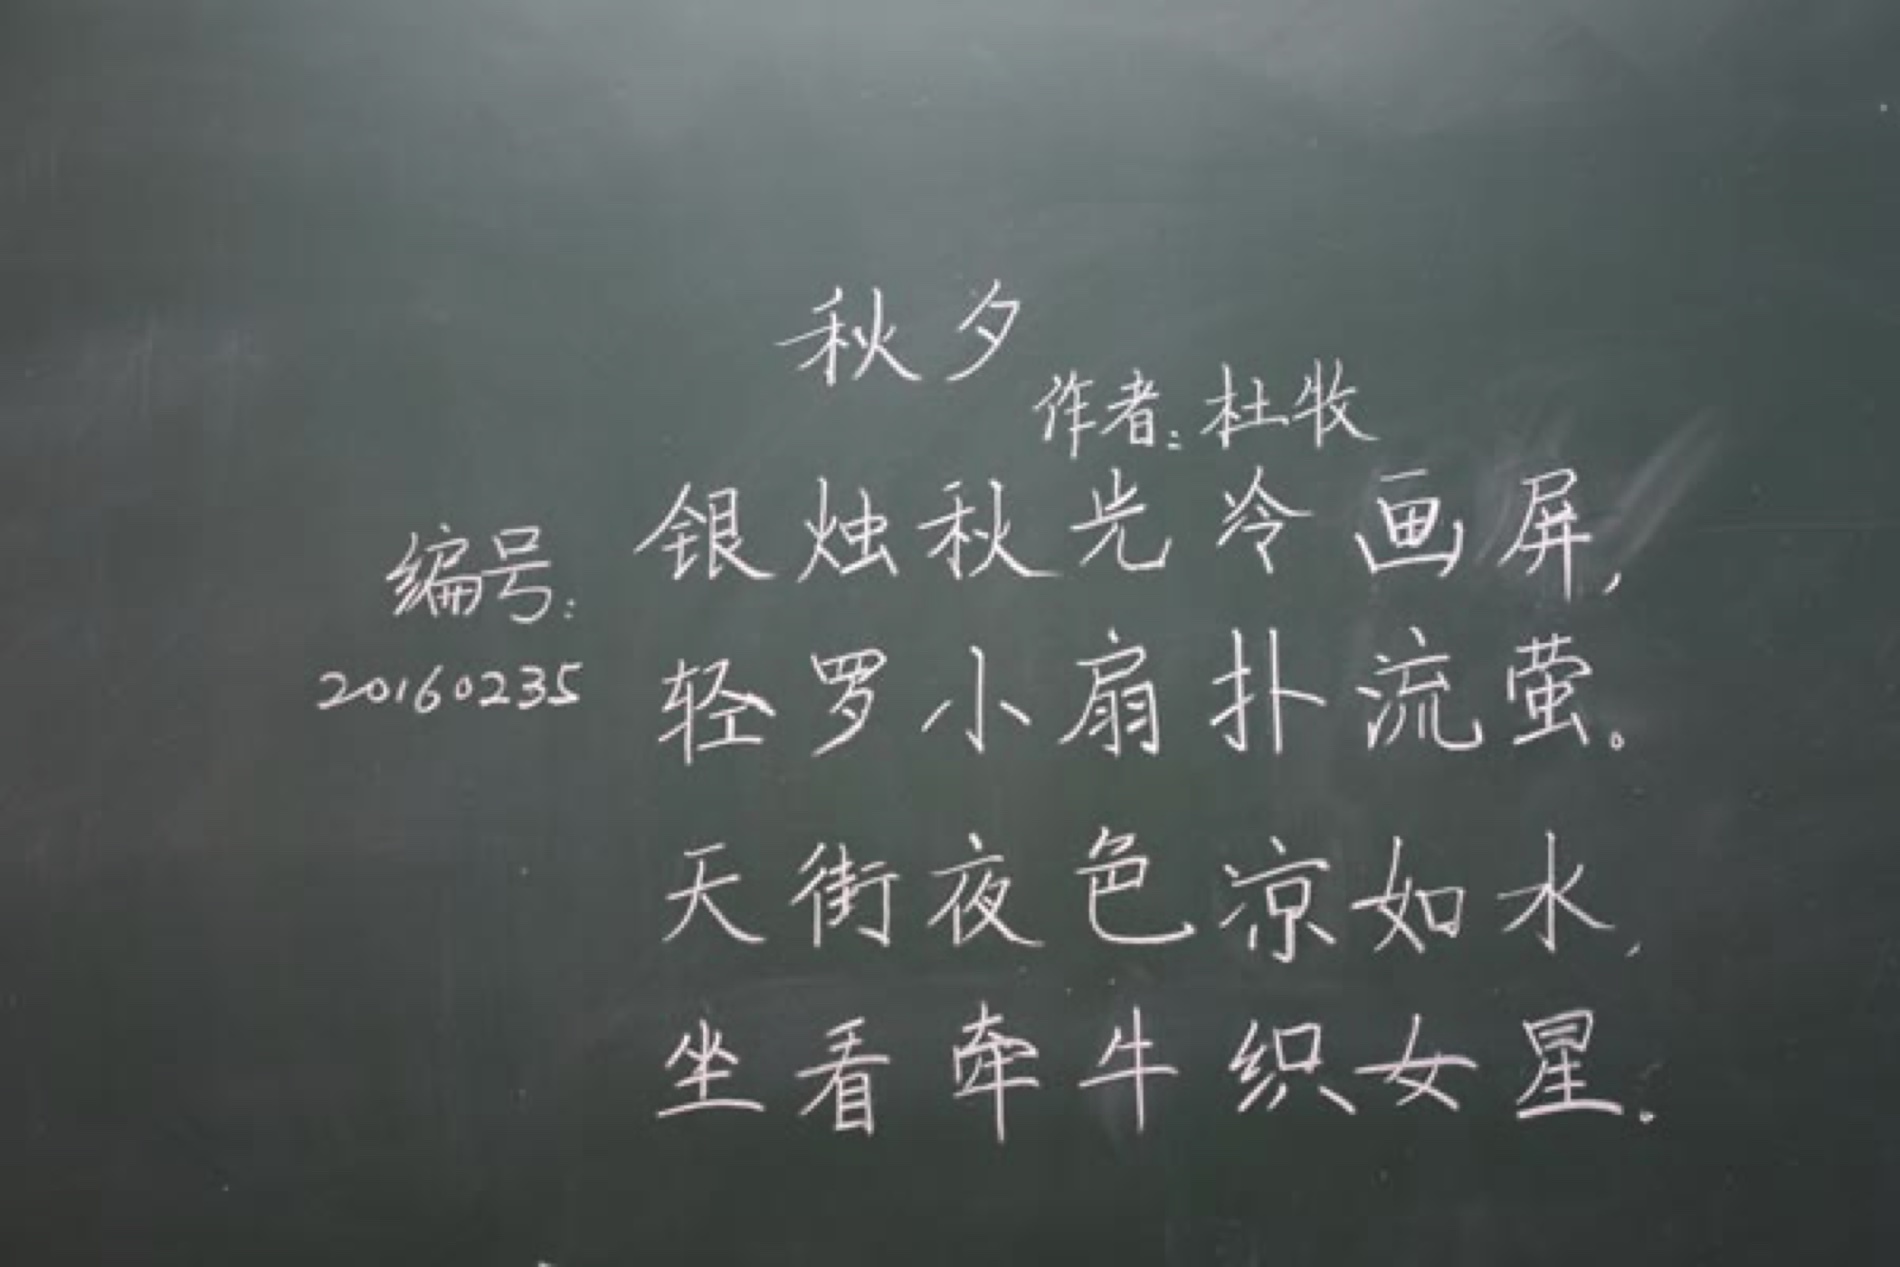 秋夕
作者:杜牧
银烛秋光冷画屏,
轻罗小扇扑流萤。
天街夜色凉如水,
坐看牵牛织女星.
编号:
20160235